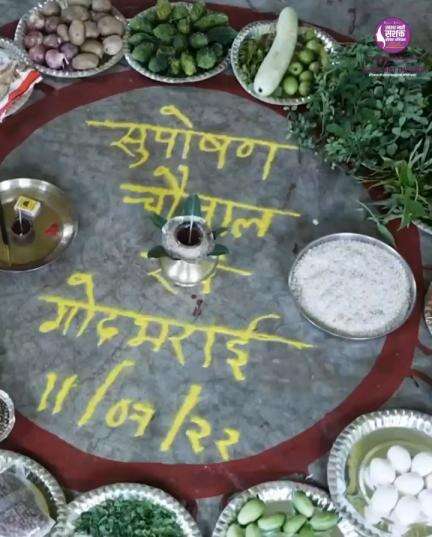 सुपोषण
चौपाल
एवं
गोदभराई
11/07/22